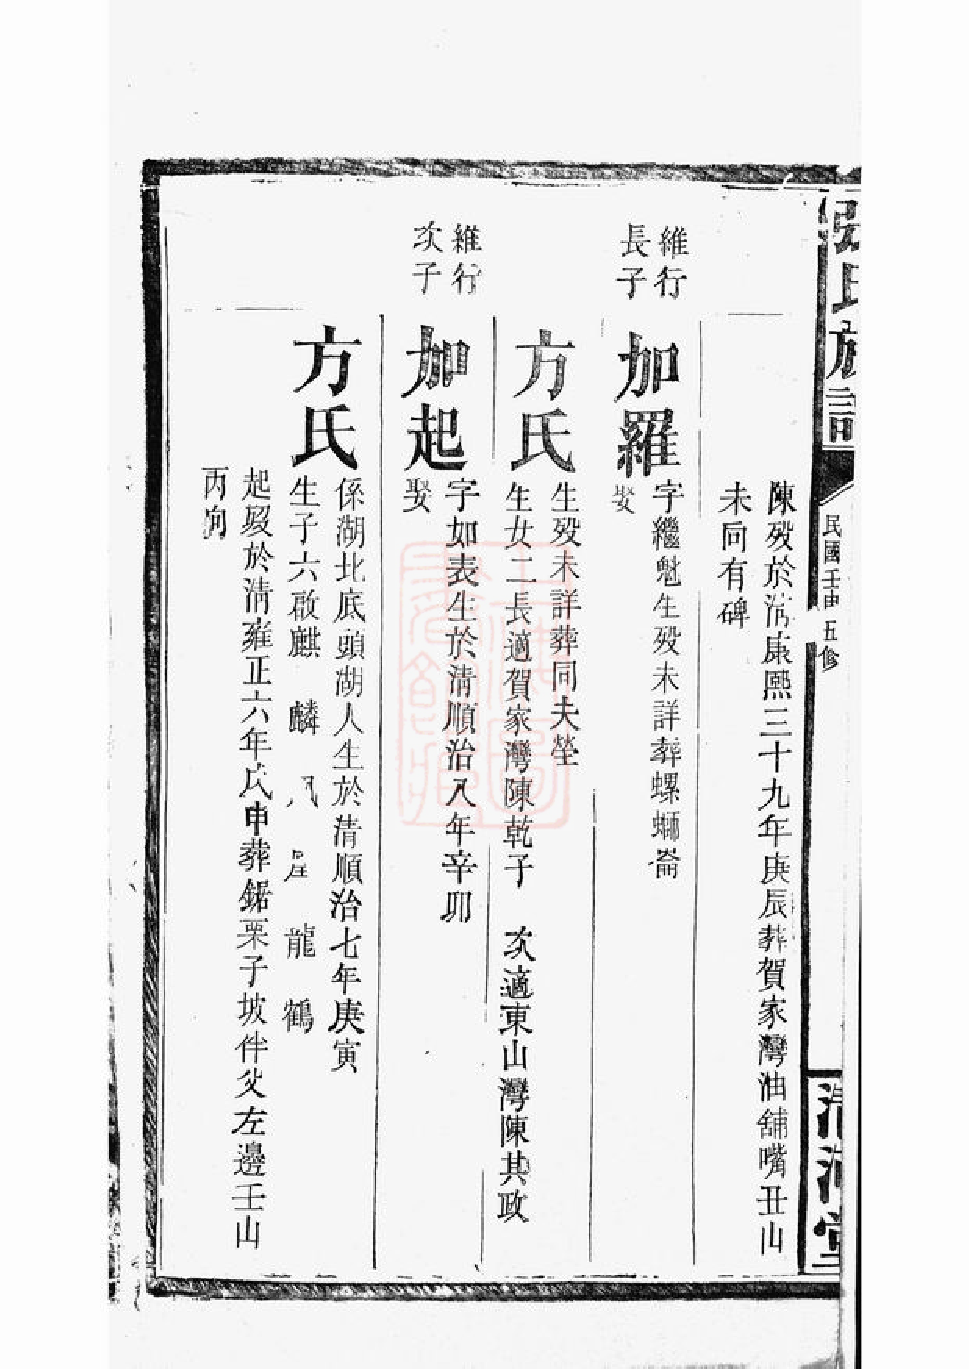 張氏族譜
民國壬申五修
清河堂
陳歿於清康熙三十九年庚辰葬賀家灣油舖嘴丑山
未向有碑
維行
長子
加羅
字繼魁生歿未詳葬螺螄崙
娶
方氏
生歿未詳葬同夫塋
生女二長適賀家灣陳乾子 次適東山灣陳其政
維行
次子
加起
字如表生於清順治八年辛卯
娶
方氏
係湖北底頭湖人生於清順治七年庚寅
生子六啟麒 麟 鳳 龍 鶴
起歿於清雍正六年戊申葬鋸栗子坡伴父左邊壬山
丙向